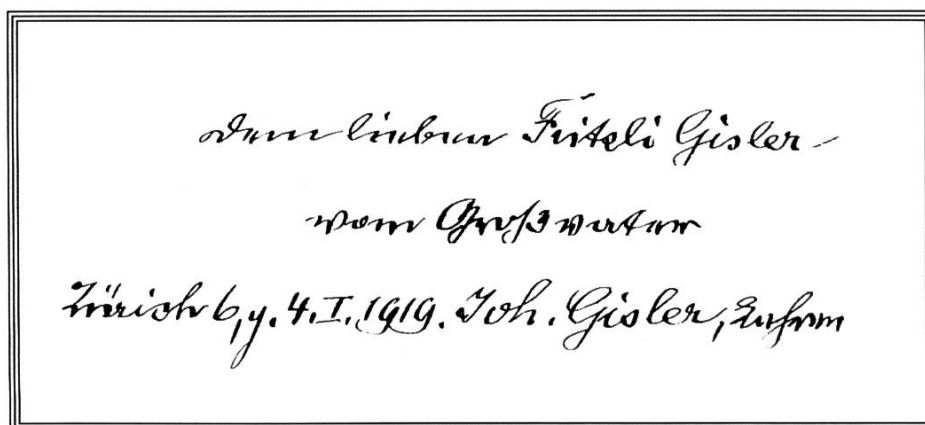 Dem lieben Fritzli Gisler
vom Großvater
Zürich 6, 4. I. 1919. Joh. Gisler, Lehrer